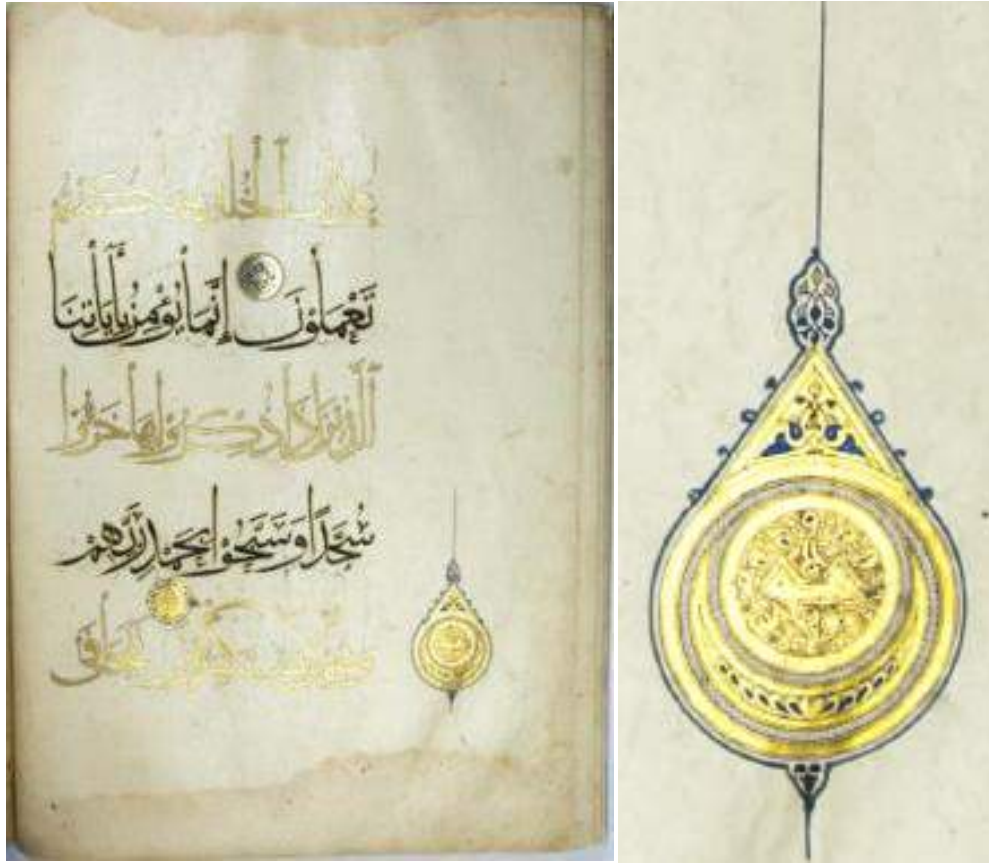 عذاب الخلد بما كنتم
تَعْمَلُونَ إِنَّمَا يُؤْمِنُ بِأَيَاتِنَا
الَّذِينَ إِذَا ذُكِّرُوا بِهَا خَرُّوا
سُجَّدًا وَسَبَّحُوا بِحَمْدِ رَبِّهِمْ
وهم لا يستكبرون تتجافى